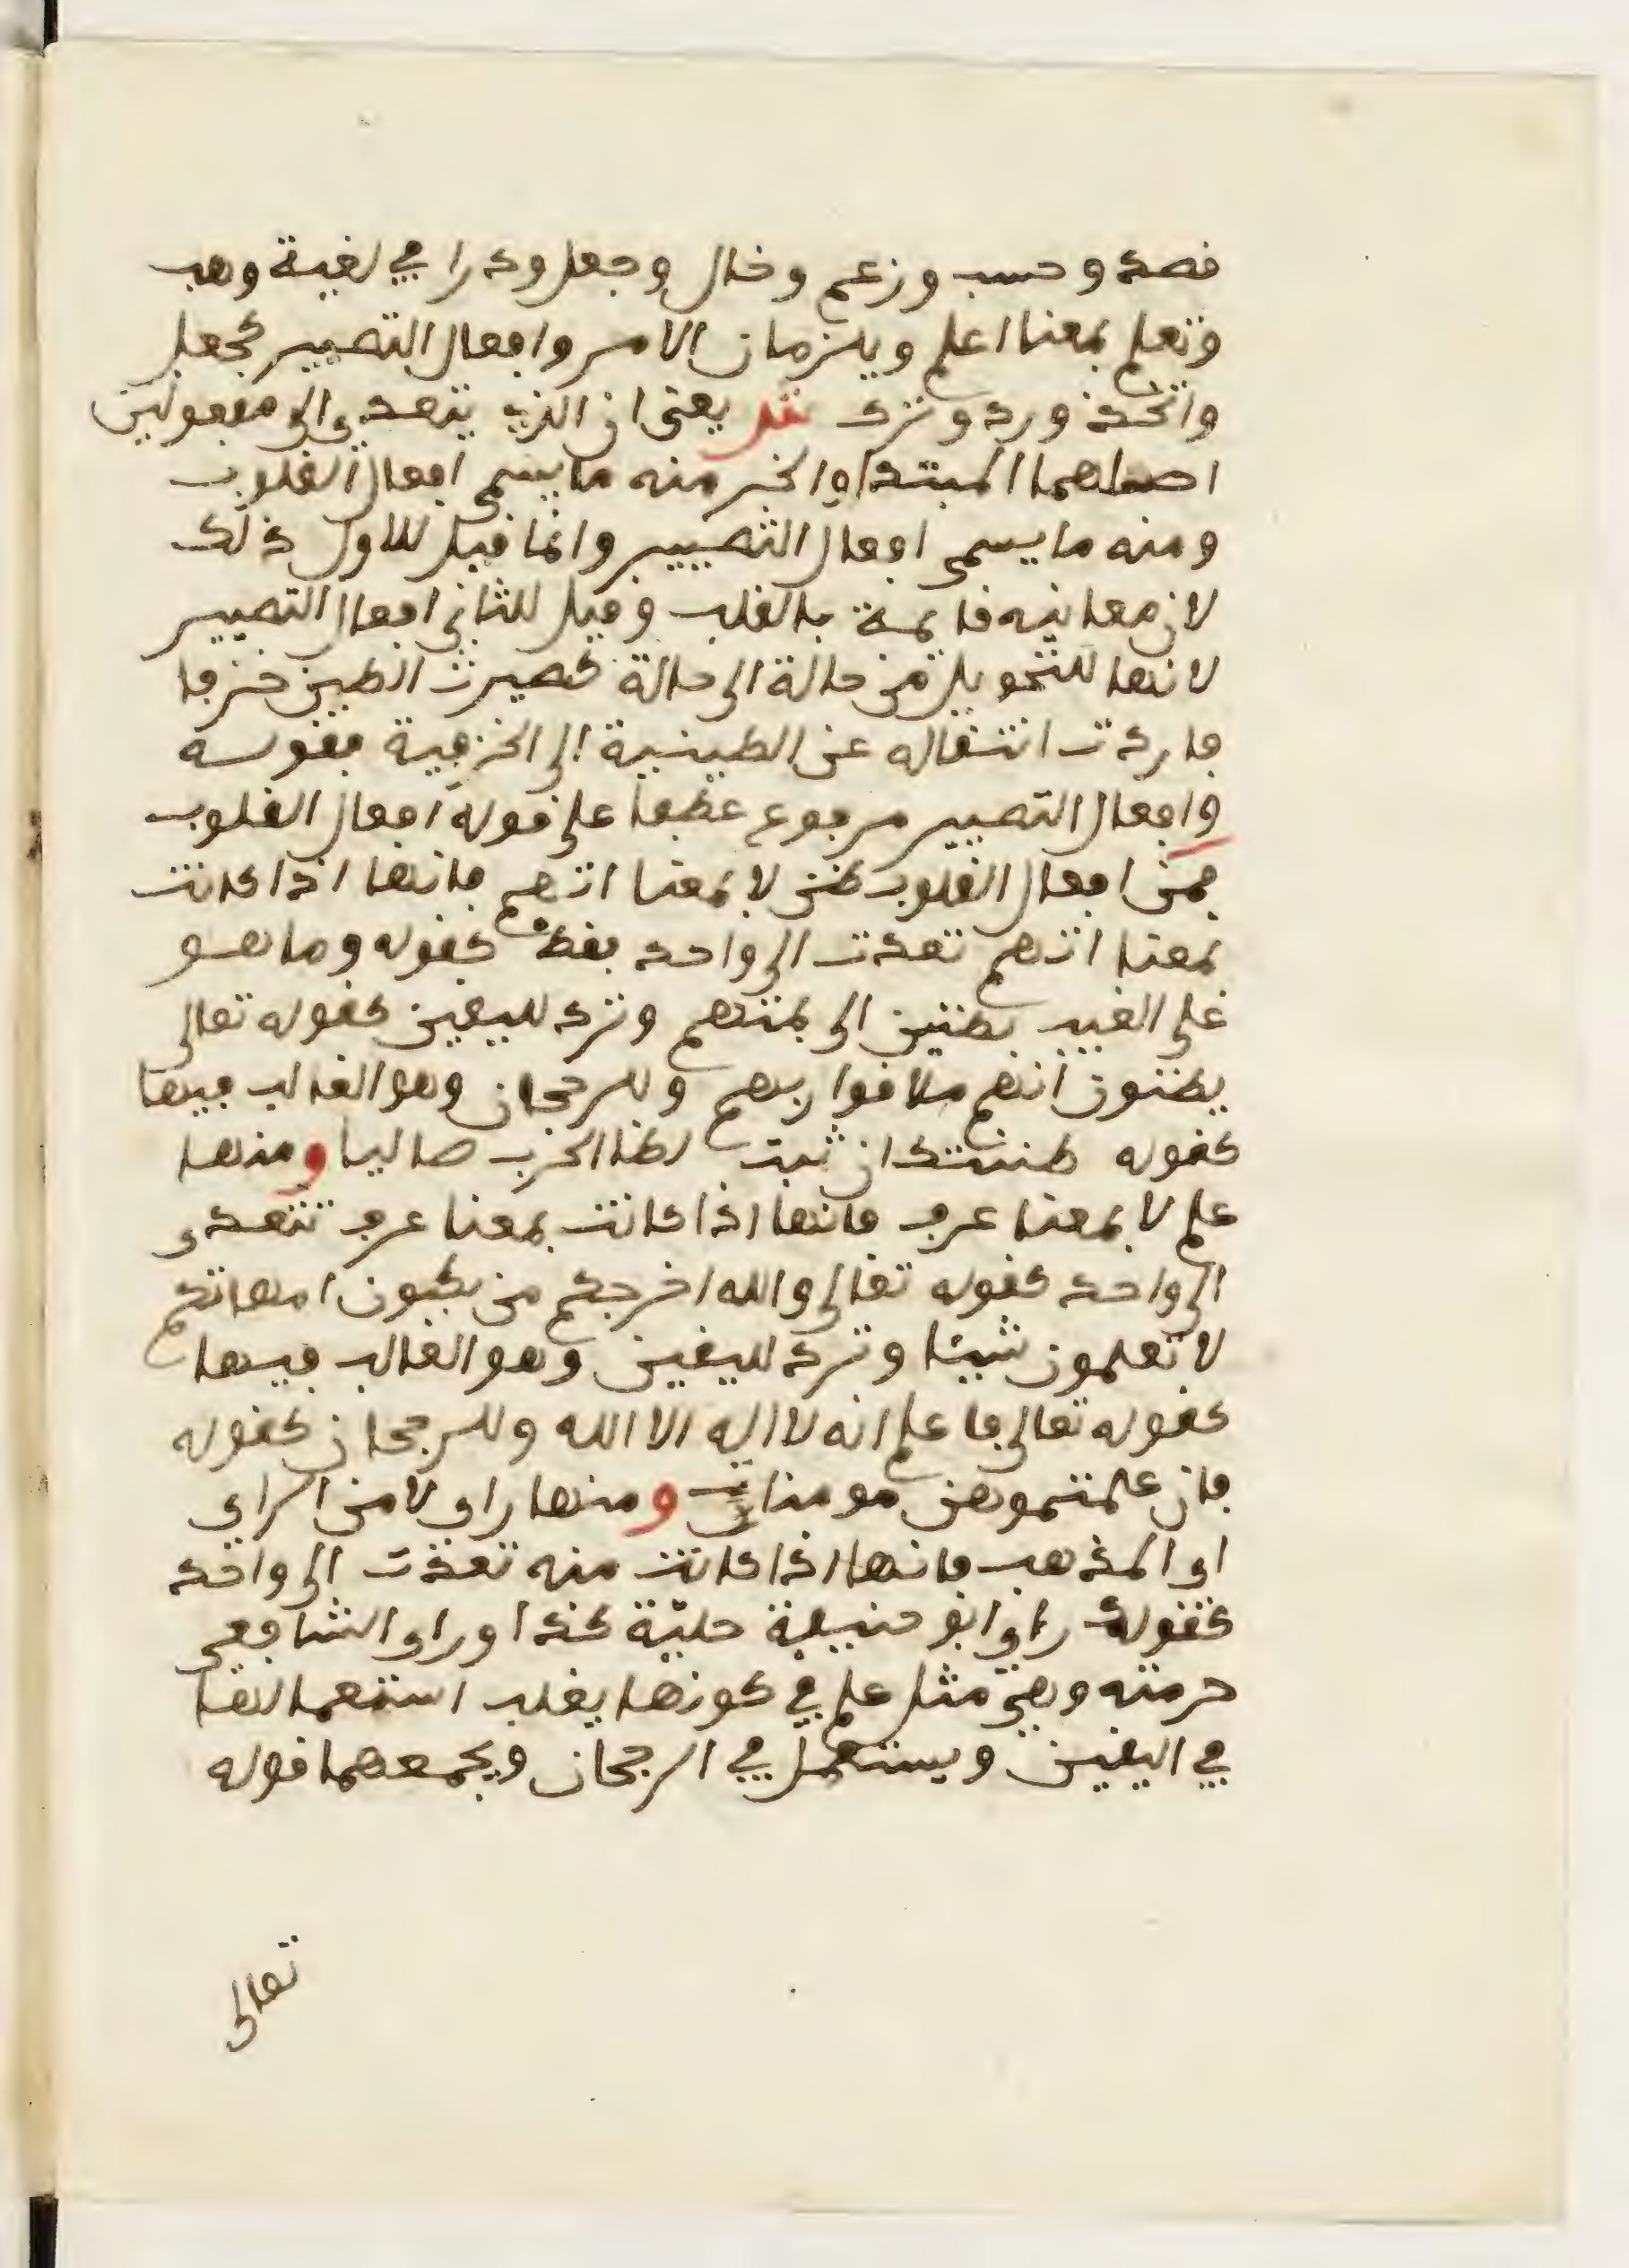 قصد وحسب وزعم وخال وجعل ودرا في لغية وهب
وتعلم بمعنا اعلم ويلزمان الامر وافعال التصيير كجعل
واتخذ ورد وترك يعني ان الذي يتعدى الى مفعولين
اصلهما المبتدا والخبر منه ما يسمى افعال القلوب
ومنه ما يسمى افعال التصيير وانما قيل للاول ذلك
لان معانيه قايمة بالقلب وقيل للثاني افعال التصيير
لانها للتحويل من حالة الى حالة كصيرت الطين خزفا
فاردت انتقاله عن الطينية الى الخزفية فقوله
وافعال التصيير مرفوع عطفا على قوله افعال القلوب
فمن افعال القلوب ظن لا بمعنا اتهم فانها اذا كانت
بمعنا اتهم تعدت الى واحد فقط كقوله وما هو
على الغيب بظنين اي بمتهم وترد لليقين كقوله تعالى
يظنون انهم ملاقوا ربهم وللرجحان وهو الغالب فيها
كقوله ظننتك ان شبت لظا الحرب صاليا ومنها
علم لا بمعنا عرف فانها اذا كانت بمعنا عرف تتعدى
الى واحد كقوله تعالى والله اخرجكم من بطون امهاتكم
لا تعلمون شيئا وترد لليقين وهو الغالب فيها
كقوله تعالى فاعلم انه لا اله الا الله وللرجحان كقوله
فان علمتموهن مومنات ومنها راى لا من الراى
اي المذهب فانها اذا كانت منه تعدت الى واحد
كقولك راى ابو حنيفة حلية كذا وراى الشافعي
حرمته وهي مثل علم في كونها يغلب استعمالها
في اليقين ويستعمل في الرجحان ويجمعهما قوله
تعالى